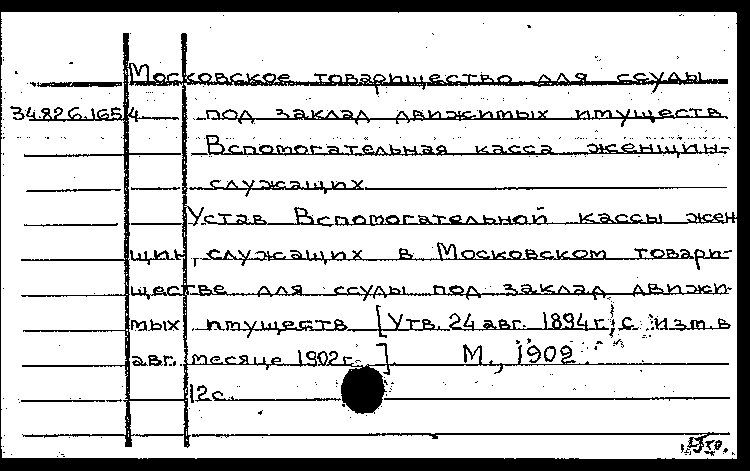 Московское товарищество для ссуды
34.826.165/4 под заклад движимых имуществ
Вспомогательная касса женщин-
служащих
Устав Вспомогательной кассы жен
щин, служащих в Московском товари-
ществе для ссуды под заклад движи-
мых имуществ [Утв. 24 авг. 1894 г., с изм. в
авг. месяце 1902 г. ] М., 1902.
12 с.